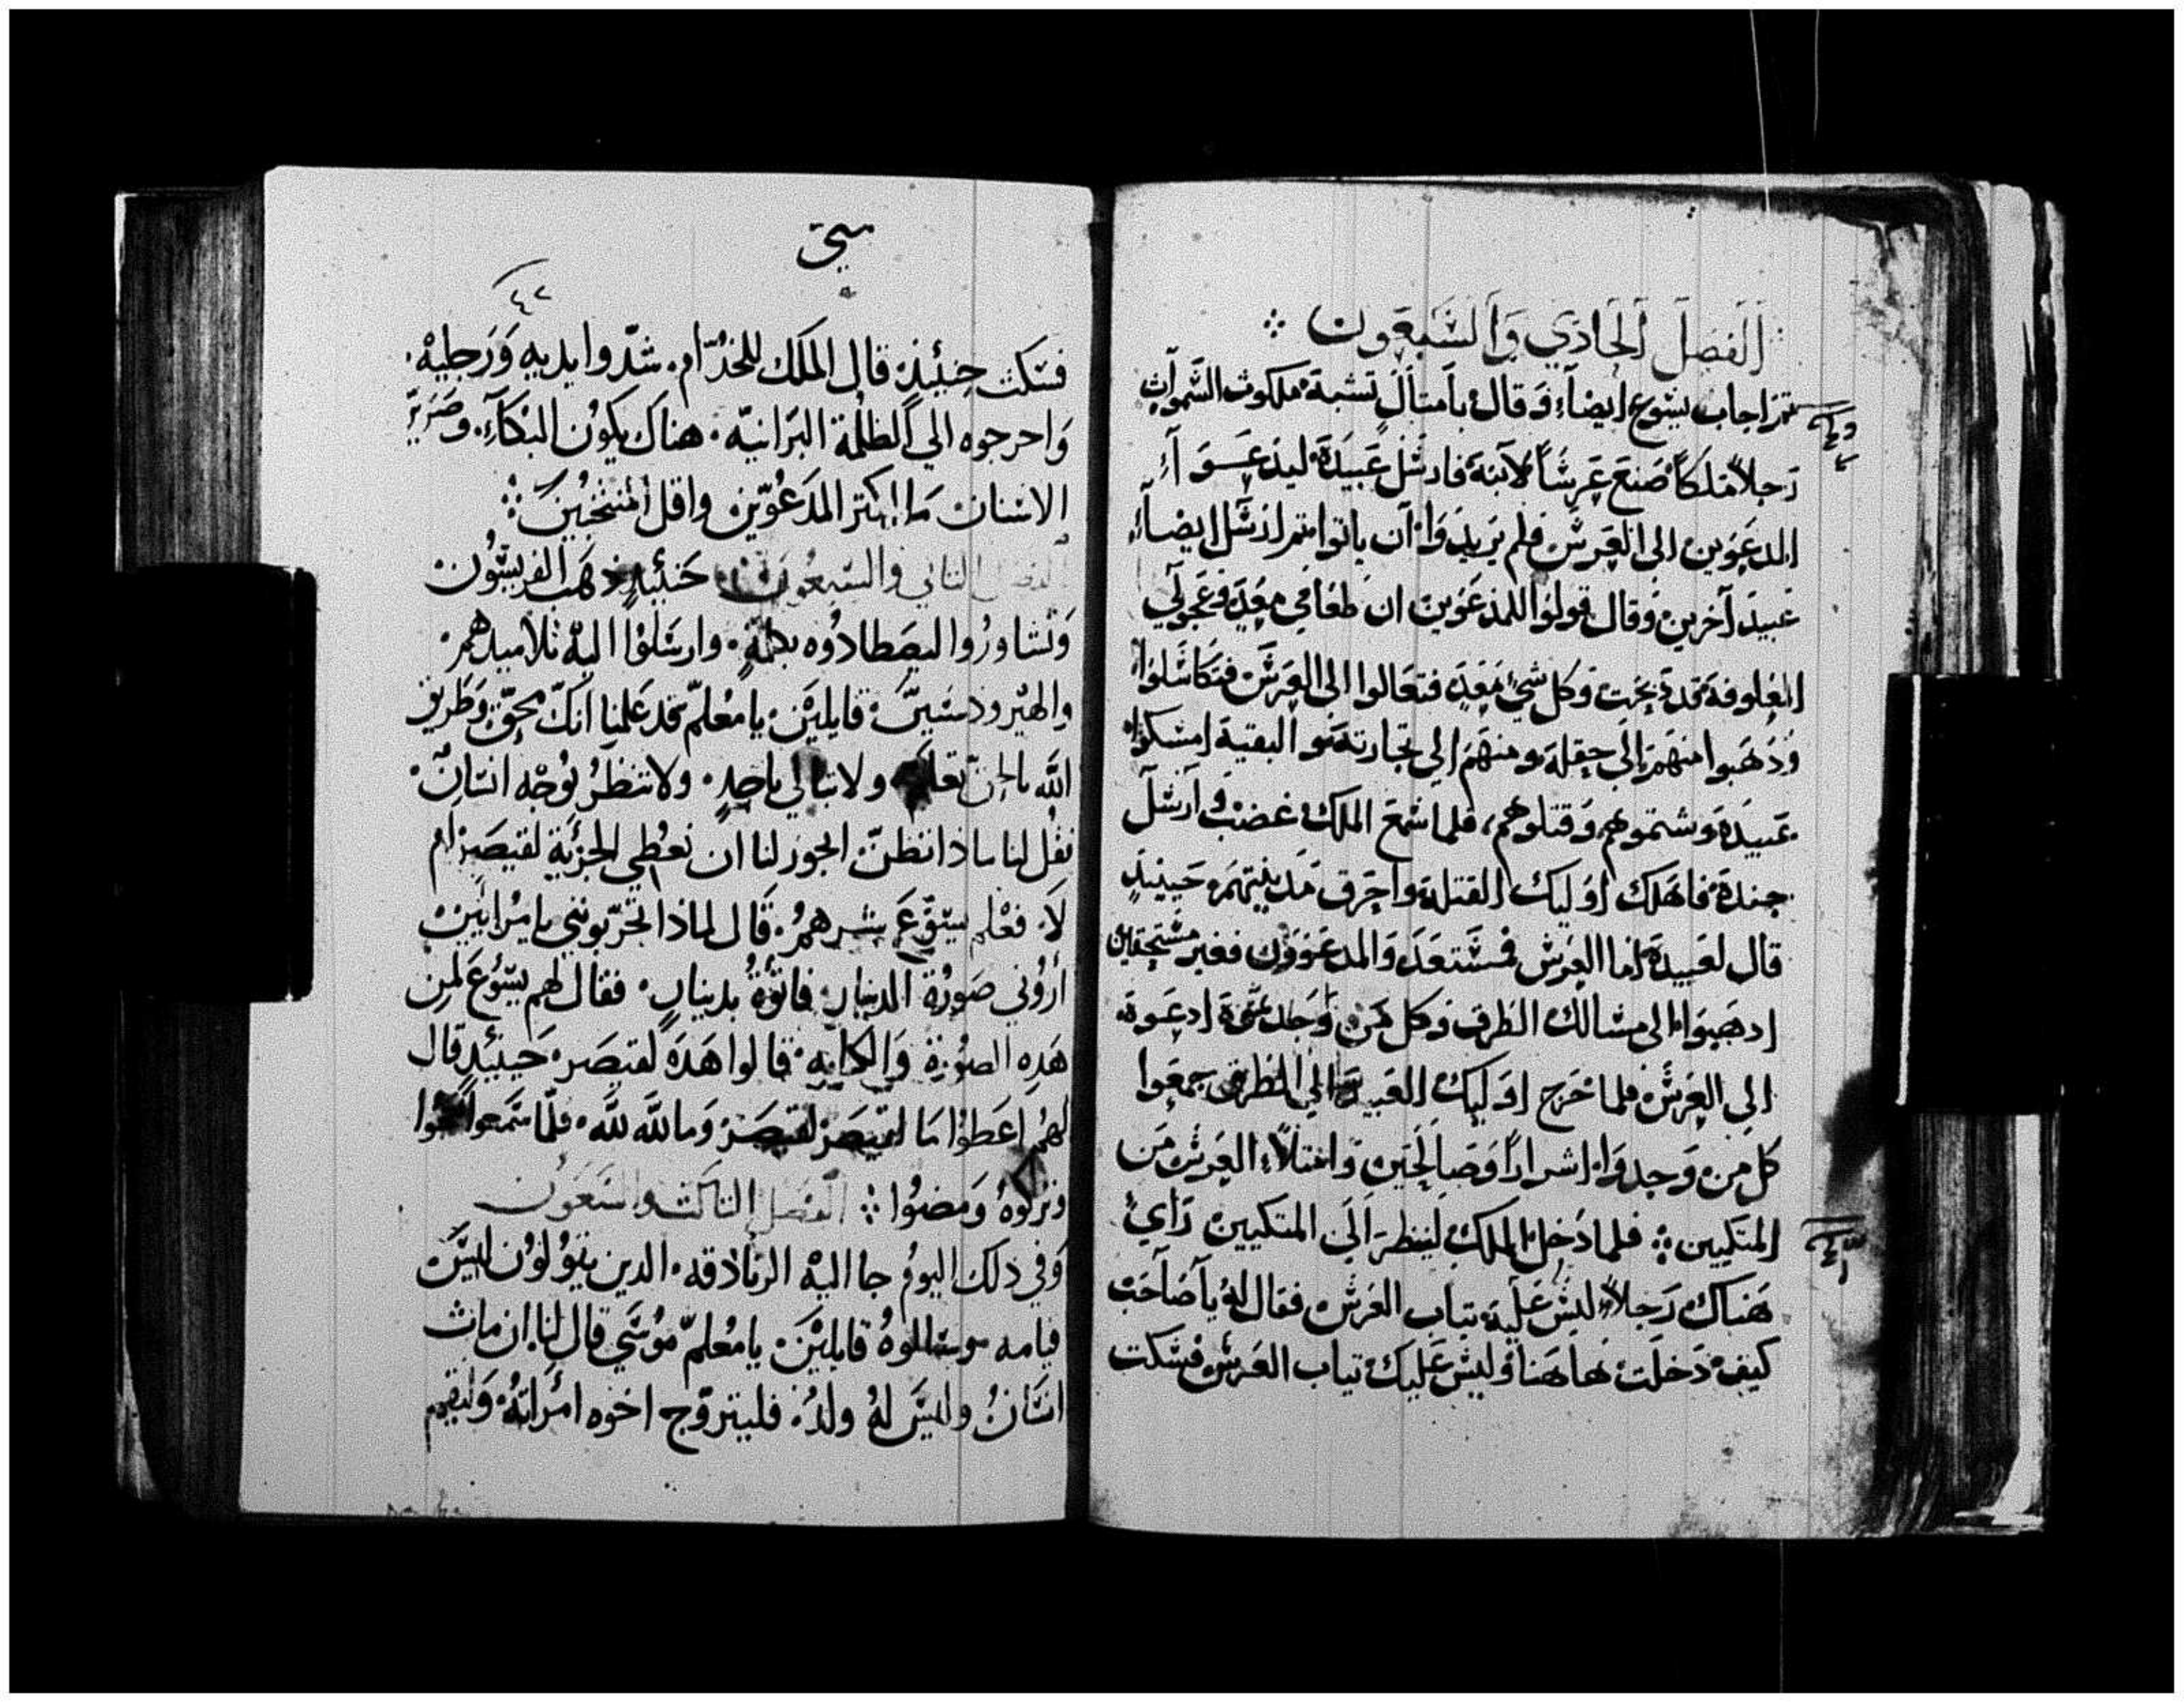 الفصل الحادي والسبعون
ثم اجاب يسوع ايضاً وقال بامثال تشبه ملكوت السموات
رجلاً ملكاً صنع عرساً لابنه فارسل عبيده ليدعوا
المدعوين الى العرس فلم يريدوا ان ياتوا ثم ارسل ايضاً
عبيد آخرين وقال قولوا للمدعوين ان طعامي معد وعجولي
المعلوفة قد ذبحت وكل شيء معد فتعالوا الى العرس فتكاسلوا
وذهبوا منهم الى حقله ومنهم الي تجارته والبقية امسكوا
عبيده وشتموهم وقتلوهم، فلما سمع الملك غضب وارسل
جنده فاهلك اوليك القتلة واحرق مدينتهم حينيذٍ
قال لعبيده اما العرس فمستعد والمدعوون فغير مستحقين
اذهبوا الى مسالك الطرق وكل من وجدتموه ادعوه
الي العرس فلما خرج اوليك العبيد الي الطرق جمعوا
كل من وجدوا اشراراً وصالحين وامتلاء العرس من
المتكيين ؞ فلما دخل الملك لينظر الى المتكيين راي
هناك رجلاً ليس عليه ثياب العرس فقال له يا صاحب
كيف دخلت هاهنا وليس عليك ثياب العرس فسكت
متى
٤٢
فسكت حينئيذٍ قال الملك للخدّام. شدّوا يديه ورجليه.
واخرجوه الي الظلمة البرانيّه. هناك يكون البكآء. وصرير
الاسنان ما اكثر المدعوّين واقل المنتخبين ؞
الفصل الثاني والسبعون حنئيدٍ ذهب الفريسّون
وتشاوروا ليصطادوه بكلمةٍ. وارسلوا اليه تلاميدهم.
والهيرودسيين قايلين يا معلمّ قد علمنا انك محقّ وطريق
الله بالحق تعلم ولا تبالي باحدٍ. ولا تنظر بوجه انسانٍ.
فقل لنا ماذا تظنّ ايجوز لنا ان نعطي الجزية لقيصر ام
لا. فعلم يسوع شرهم. قال لماذا تجرّبونني يا مرايين
أروني صورة الدينار. فاتوه بدينارٍ. فقال لهم يسوع لمن
هذه الصورة والكتابه. قالوا هذه لقيصر. حينيدٍ قال
لهم اعطوا ما لقيصر لقيصر وما للّه للّه. فلمّا سمعوا
وتركوه ومضوا ؞ الفصل الثالث والسبعون
وفي ذلك اليوم جا اليه الزنادقه. الدين يقولون ليس
قيامه وسالوه قايلين. يا معلمّ موسي قال لنا. ان مات
انسان وليس له ولد. فليتزوّج اخوه امراته. وليقيم